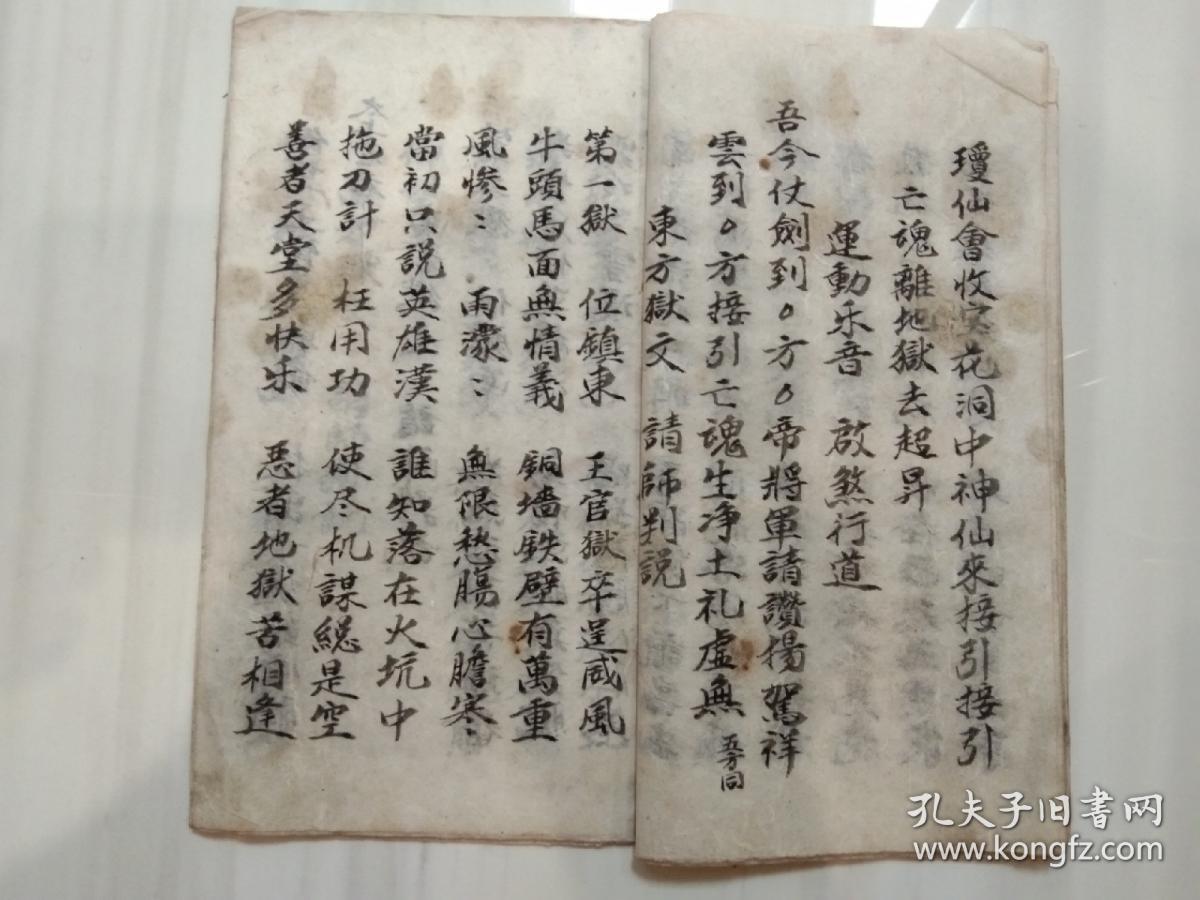 瓊仙會收实花洞中神仙來接引接引
亡魂離地獄去超昇
運動乐音 啟煞行道
吾今仗劍到〇方〇帝將軍請讚揚駕祥
雲到〇方接引亡魂生净土礼虛無 五方同
東方獄文 請師判説
第一獄 位鎮東 王官獄卒逞威風
牛頭馬面無情義 銅墻鉄壁有萬重
風慘〻 雨濛〻 無限愁腸心膽寒
當初只説英雄漢 誰知落在火坑中
拖刀計 枉用功 使尽机謀總是空
善者天堂多快乐 恶者地獄苦相逢
孔夫子旧书网
www.kongfz.com